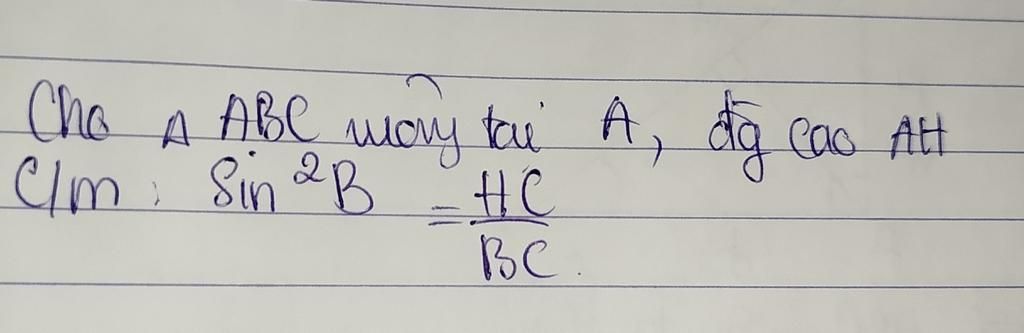 Cho Δ ABC vuông tại A, đg cao AH
C/m : Sin²B = HC
BC.